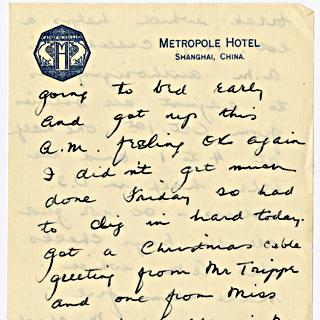 METROPOLE HOTEL
SHANGHAI, CHINA.
going to bed early
and got up this
a.m. feeling OK again
I didn't get much
done Friday so had
to dig in hard today.
Got a Christmas cable
greeting from Mr Trippe
and one from Miss